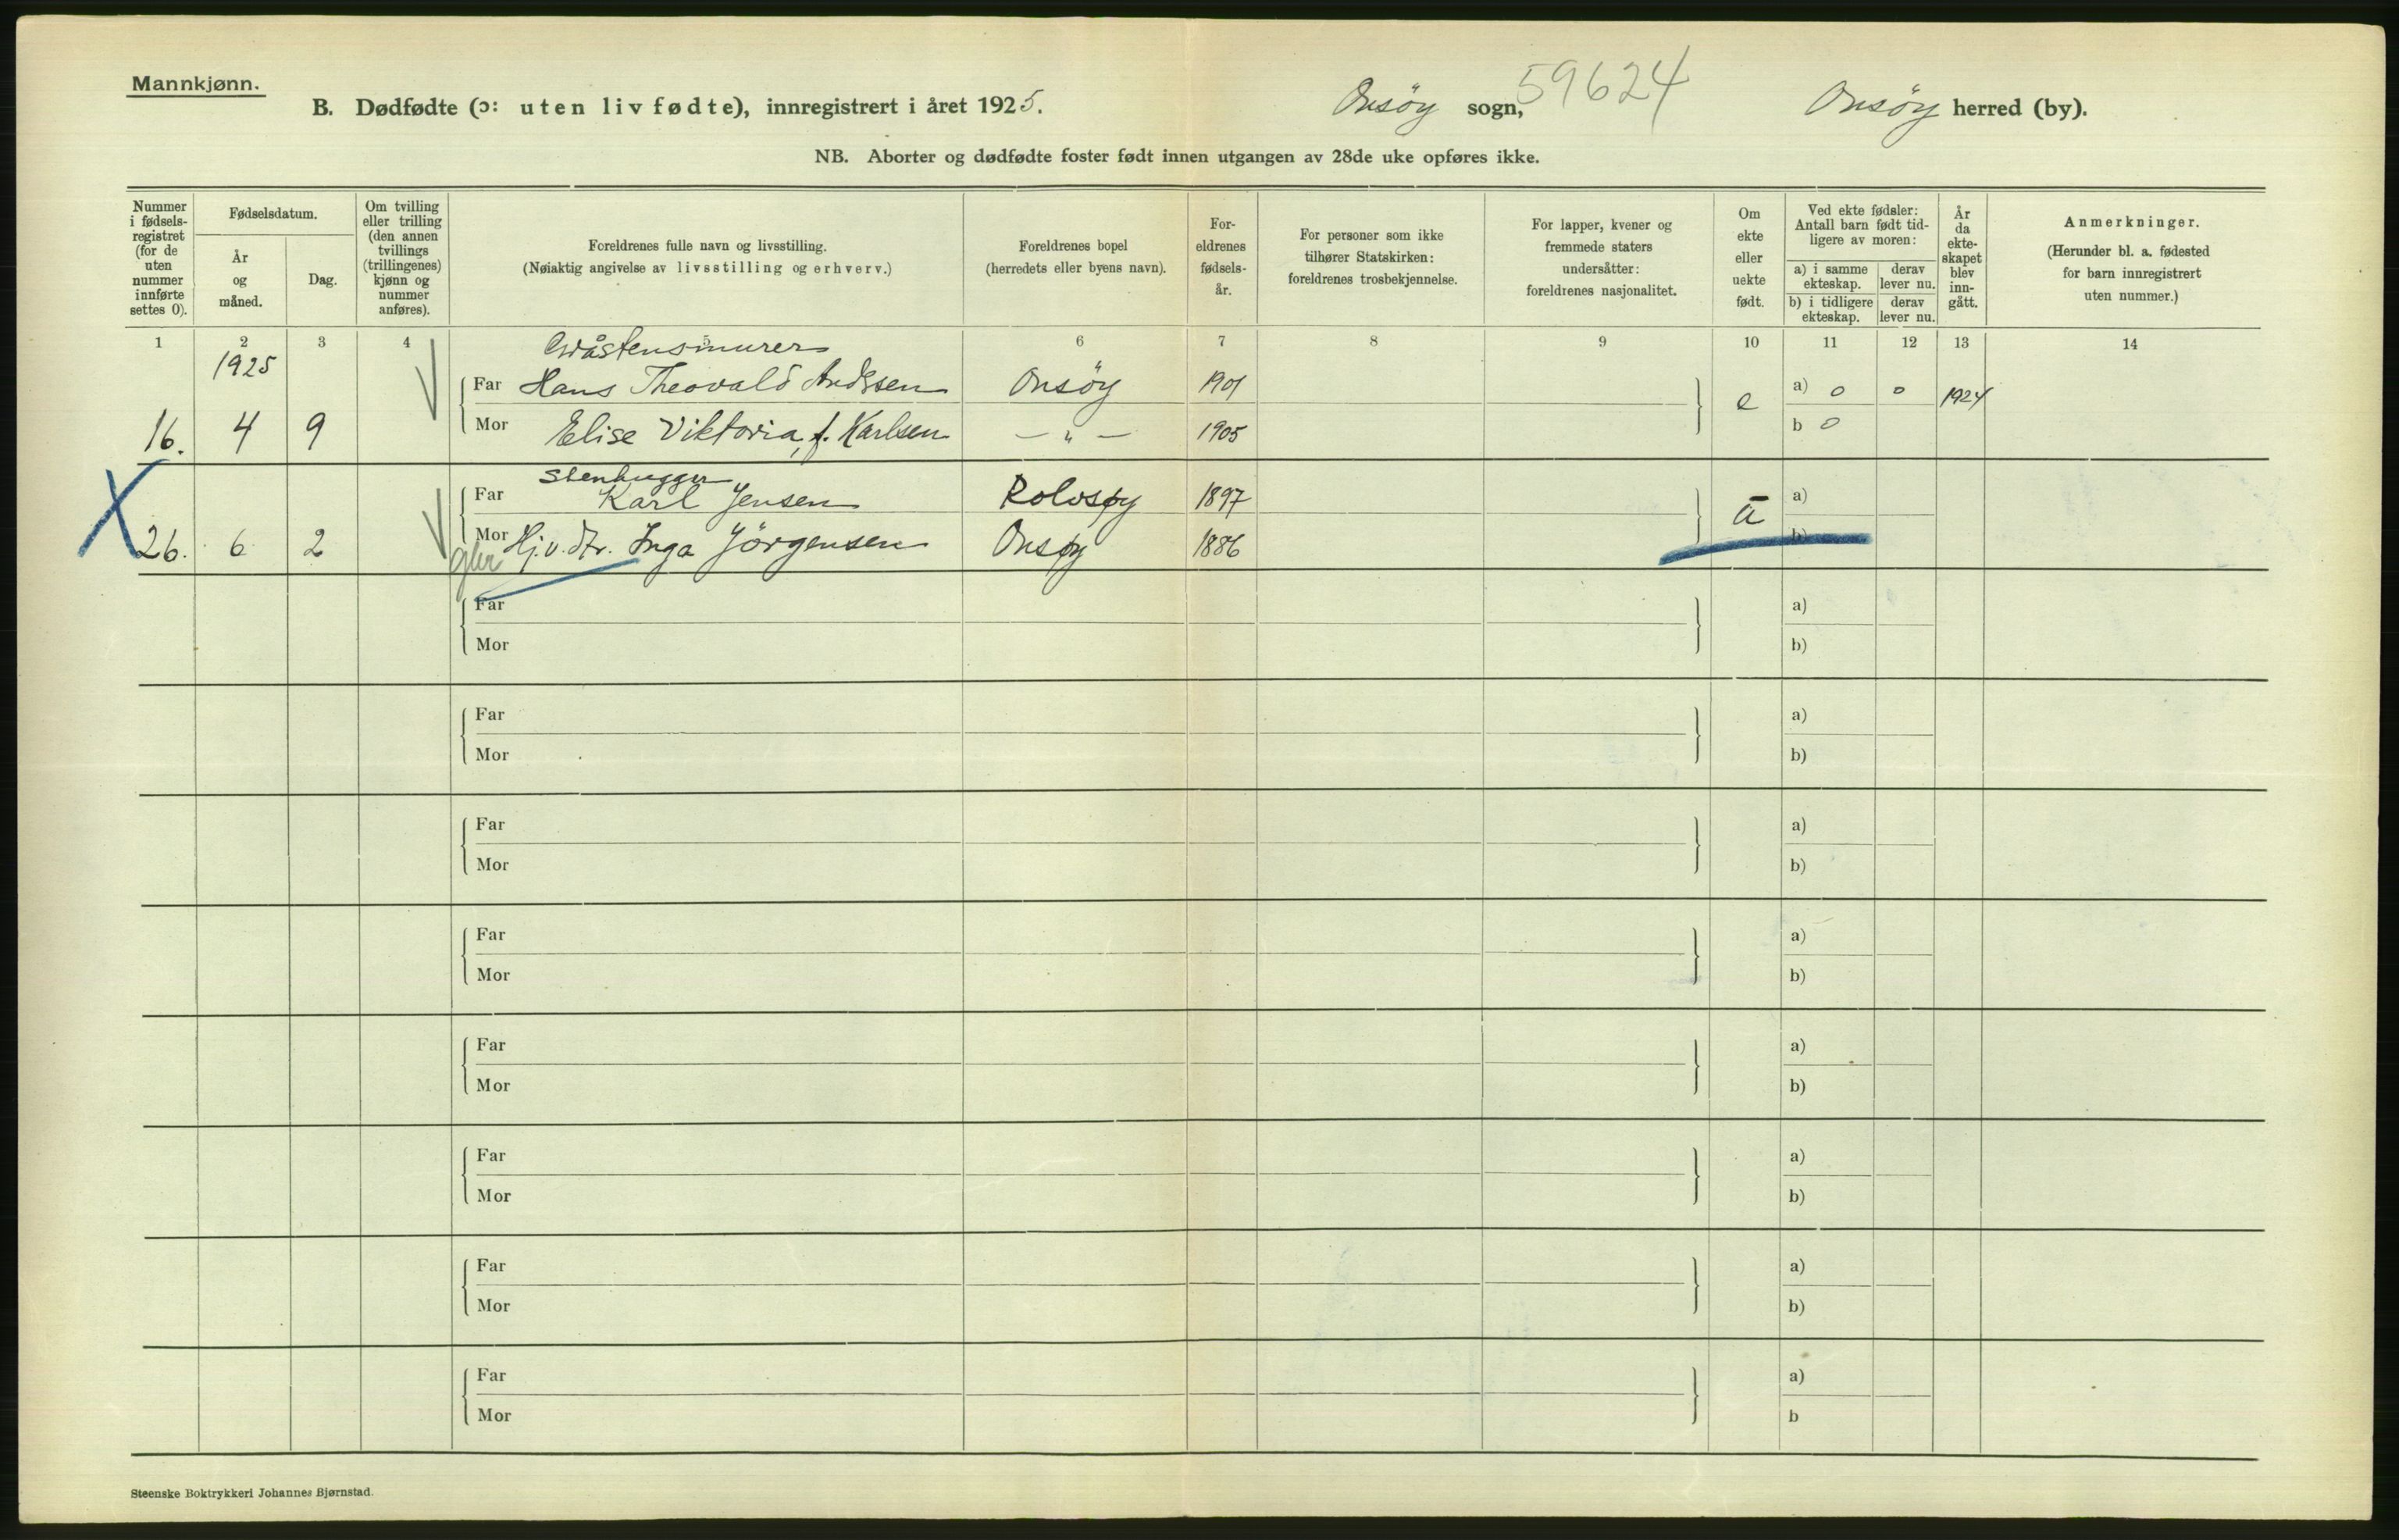 Mannkjønn.
B. Dødfødte (ɔ: uten liv fødte), innregistrert i året 1925. Onsöy sogn, 59624 Onsöy herred (by).
NB. Aborter og dødfødte foster født innen utgangen av 28de uke opføres ikke.
Nummer i fødsels-registret (for de uten nummer innførte settes 0).
Fødselsdatum.
År og måned.
Dag.
Om tvilling eller trilling (den annen tvillings (trillingenes) kjønn og nummer anføres).
Foreldrenes fulle navn og livsstilling.
(Nøiaktig angivelse av livsstilling og erhverv.)
Foreldrenes bopel
(herredets eller byens navn).
For-eldrenes fødsels-år.
For personer som ikke tilhører Statskirken: foreldrenes trosbekjennelse.
For lapper, kvener og fremmede staters undersåtter: foreldrenes nasjonalitet.
Om ekte eller uekte født.
Ved ekte fødsler: Antall barn født tid-ligere av moren:
a) i samme ekteskap. derav lever nu.
b) i tidligere ekteskap. derav lever nu.
År da ekte-skapet blev inn-gått.
Anmerkninger.
(Herunder bl. a. fødested for barn innregistrert uten nummer.)
1 2 3 4 6 7 8 9 10 11 12 13 14
1925 Gråstensmurer
Far Hans Theovald Andssen Onsöy 1901 e a) 0 0 1924
16. 4 9 Mor Elise Viktoria, f. Karlsen — „ — 1905 b 0
Stenhugger
Far Karl Jensen Rolvsøy 1897 a)
X 26. 6 2 Mor Hj.v. dtr. Inga Jörgensen Onsøy 1886 b)
Far a)
Mor b)
Far a)
Mor b)
Far a)
Mor b)
Far a)
Mor b)
Far a)
Mor b)
Far a)
Mor b)
Far a)
Mor b)
Far a)
Mor b
Steenske Boktrykkeri Johannes Bjørnstad.